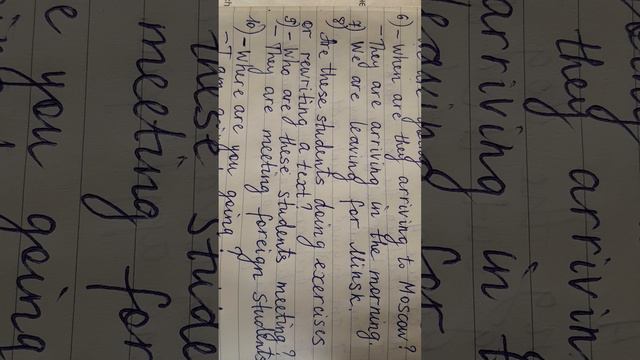 6) - When are they arriving to Moscow?
- They are arriving in the morning.
7) We are leaving for Minsk.
8) Are these students doing exercises
or rewriting a text?
9) - Who are these students meeting?
- They are meeting foreign students
10) - Where are you going?
- I am going